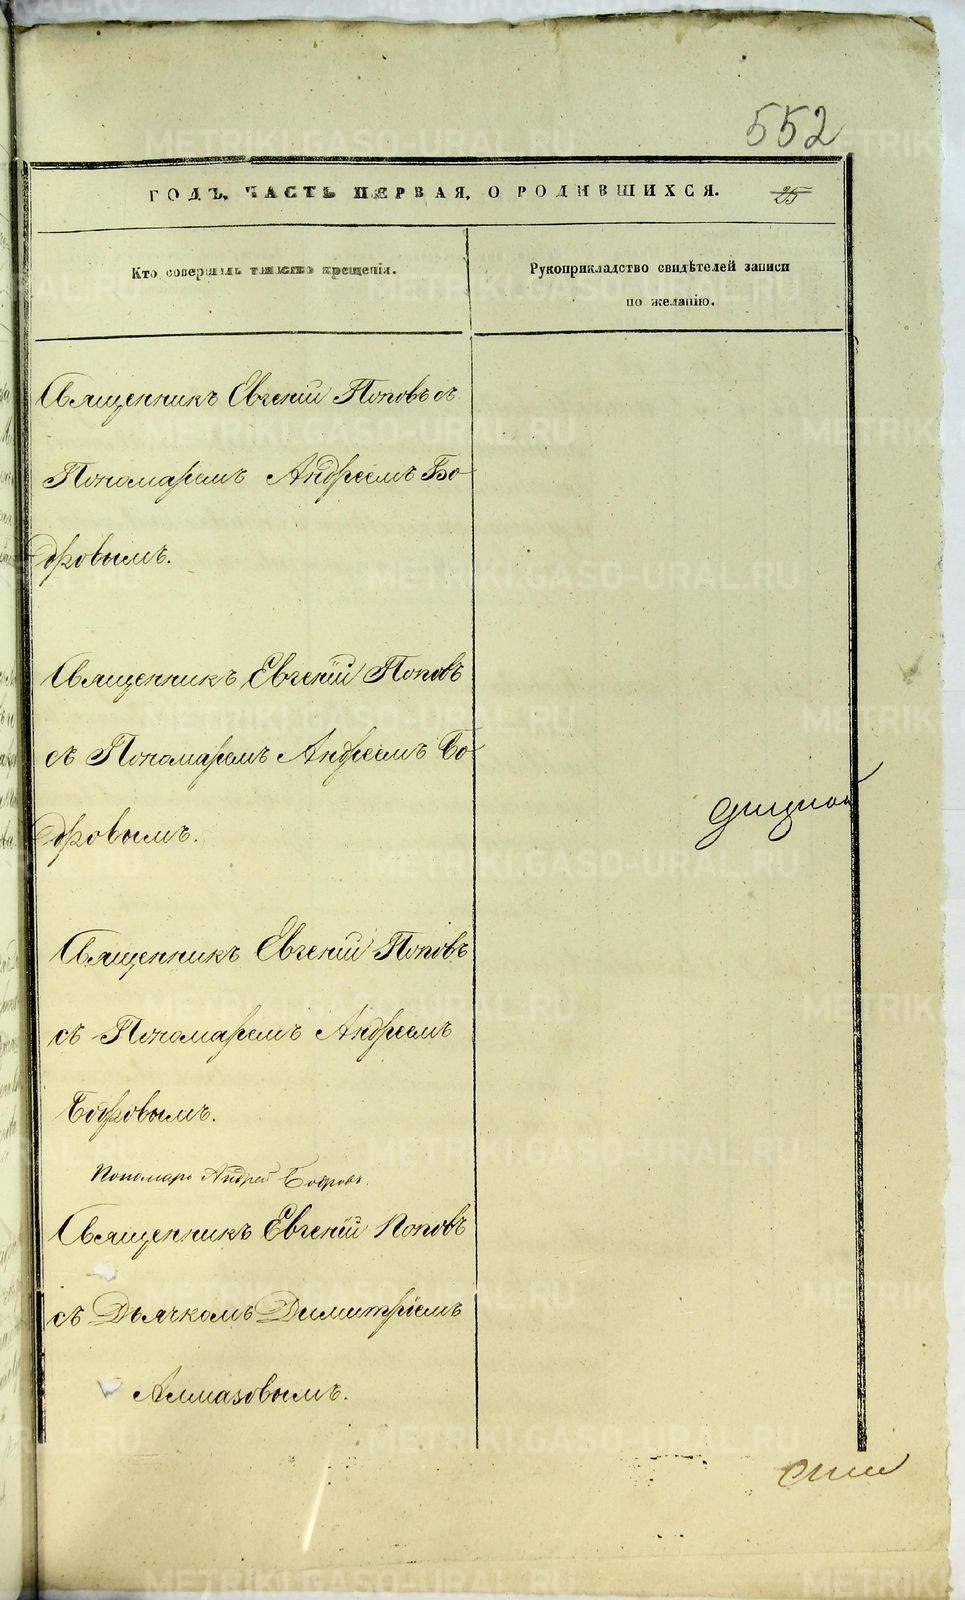 552
ГОДЪ, ЧАСТЬ ПЕРВАЯ, О РОДИВШИХСЯ.
25
Кто совершалъ таинство крещенія.
Рукоприкладство свидѣтелей записи
по желанію.
Священникъ Евгеній Поповъ съ
Пономаремъ Андреемъ Бо-
дровымъ.
Священникъ Евгеній Поповъ
съ Пономаремъ Андреемъ Бо-
дровымъ.
Священникъ Евгеній Поповъ
съ Пономаремъ Андреемъ
Бодровымъ.
Пономарь Андрей Бодровъ.
Священникъ Евгеній Поповъ
съ Дьячкомъ Димитріемъ
Алмазовымъ.
METRIKI.GASO-URAL.RU